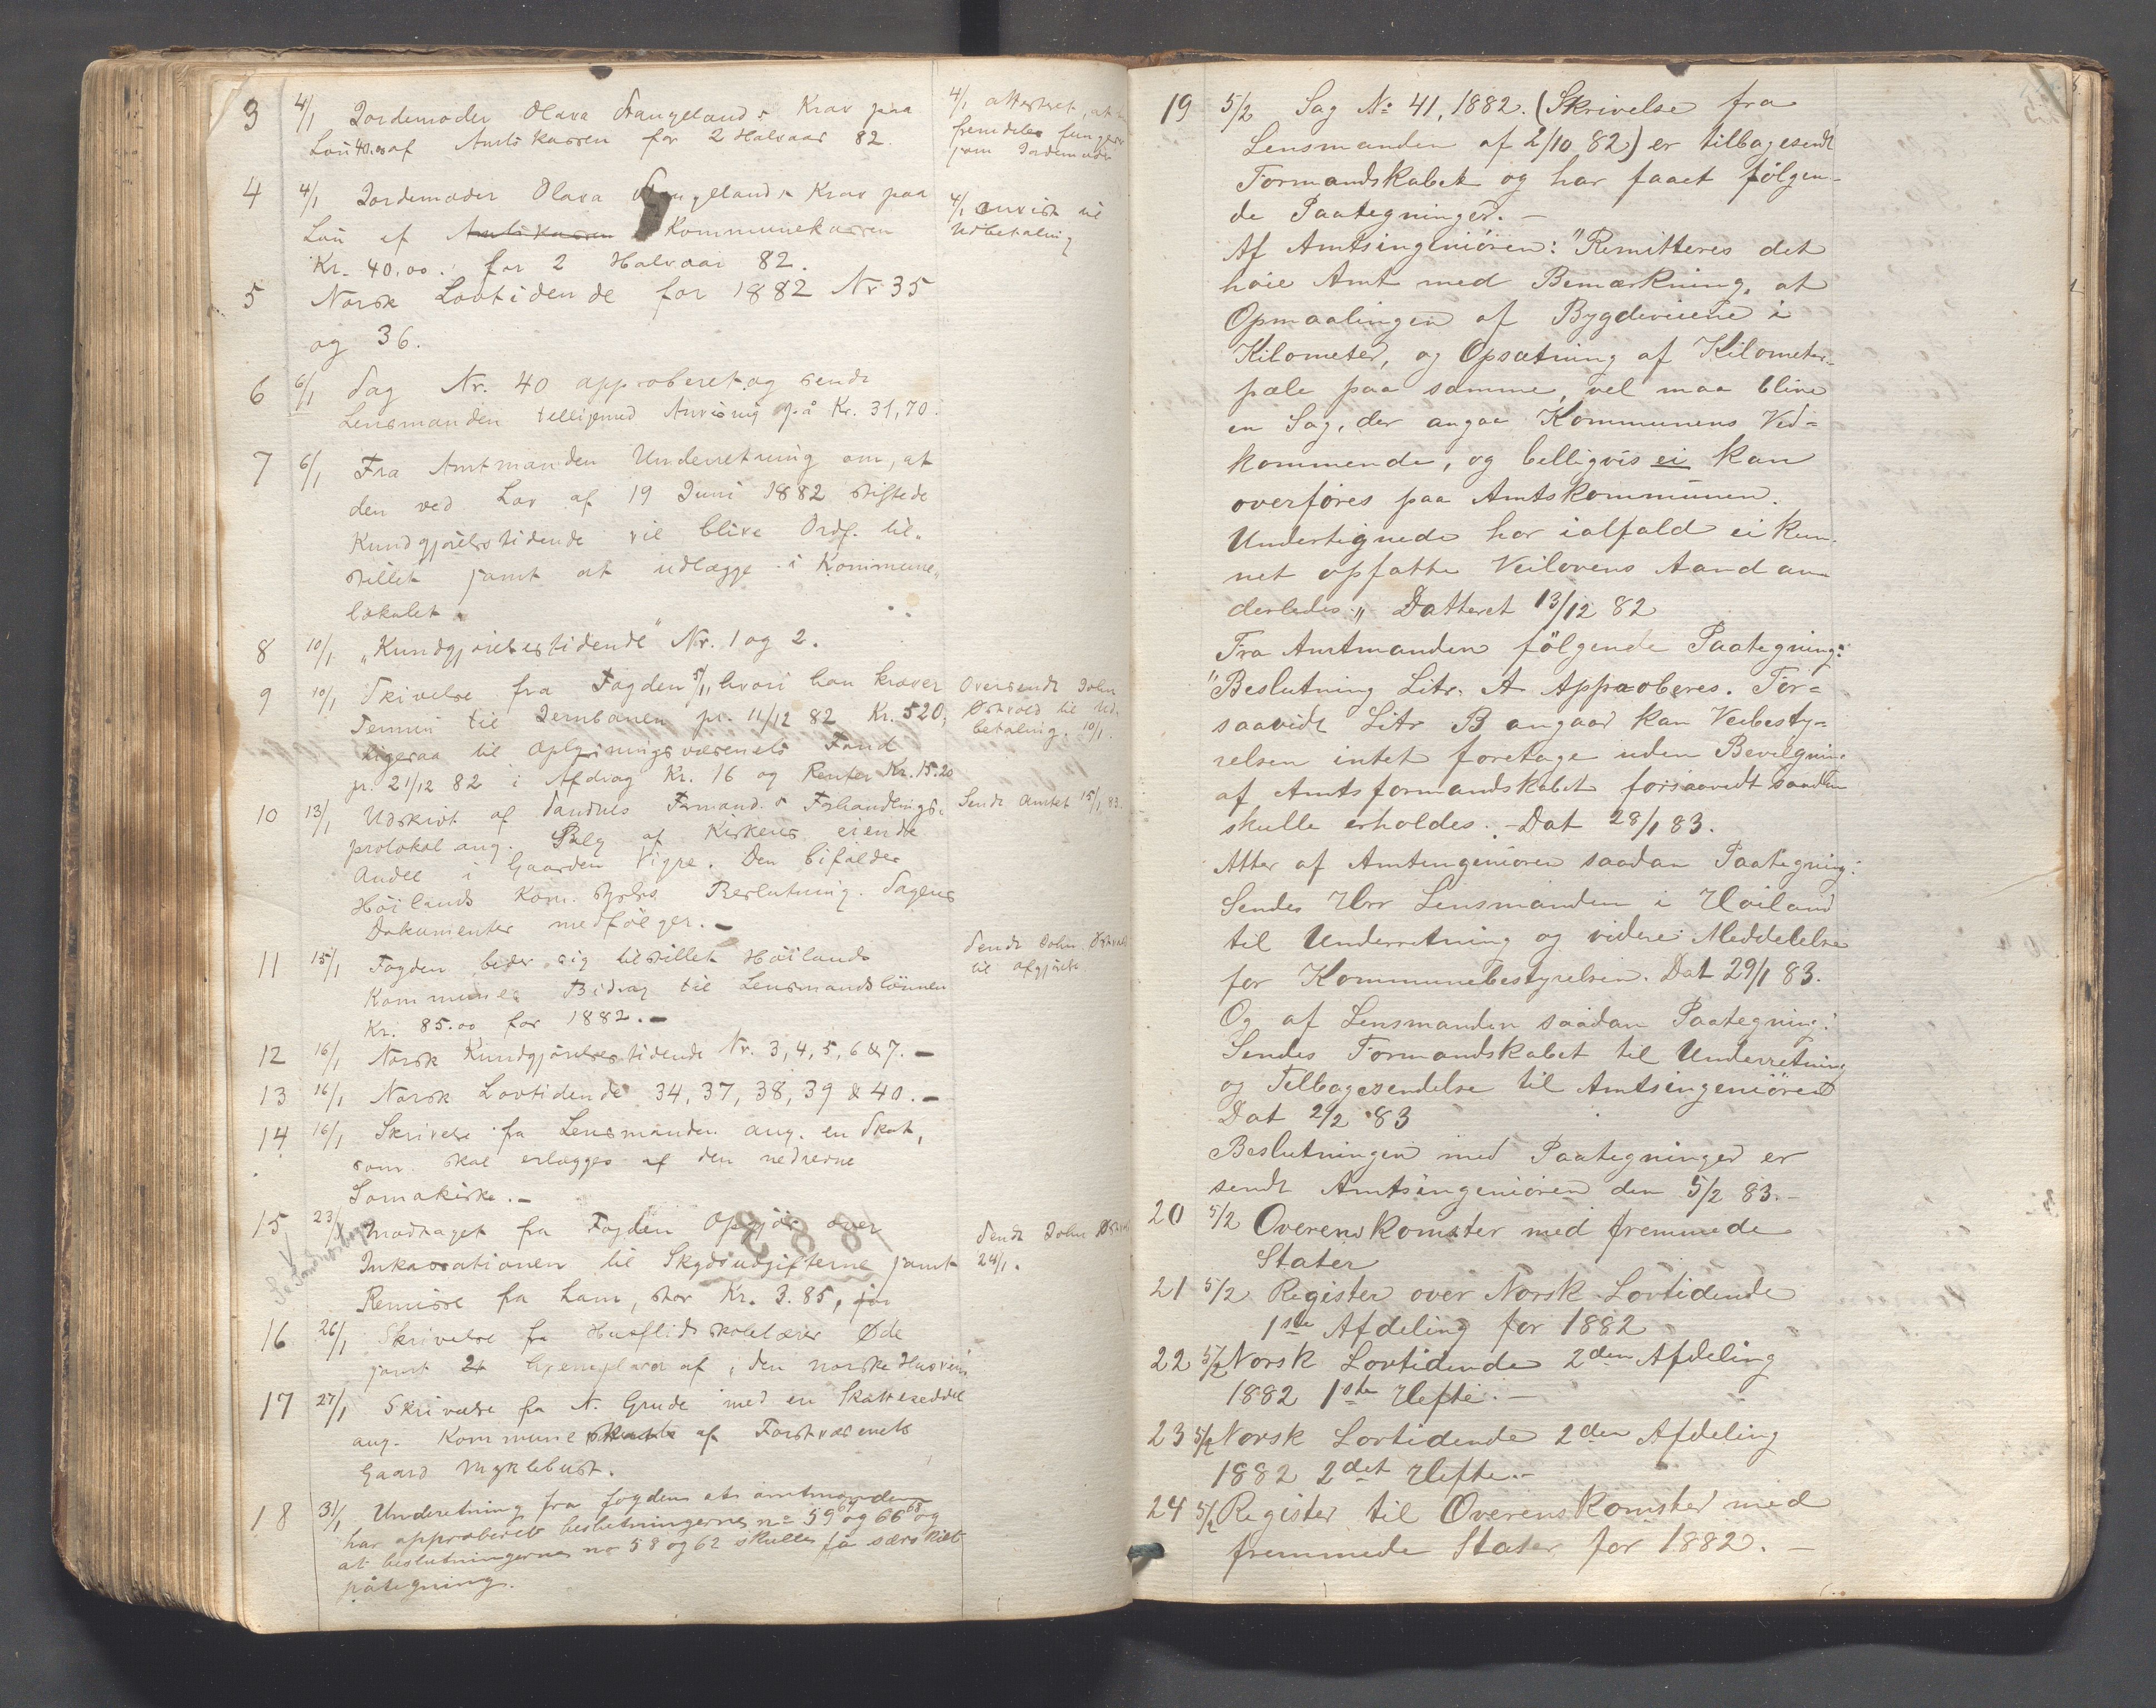 3 4/1 Jordemoder Olava Stangelands Krav paa
Løn 40.00 af Amtskassen for 2 Halvaar 82.
4/1 attesteret, at
fremdeles fungerer
som Jordemoder
4 4/1 Jordemoder Olava Stangelands Krav paa
Løn af Amtskassen Kommunekassen
Kr. 40.00. for 2 Halvaar 82.
4/1 anvist til
Udbetaling
5 Norsk Lovtidende for 1882 Nr 35
og 36.
6 6/1 Sag Nr. 40 approberet og sendt
Lensmanden tilligemed Anvisning Kr. 31,70.
7 6/1 Fra Amtmanden Underretning om, at
den ved Lov af 19 Juni 1882 stiftede
Kundgjørelsestidende vil blive Ordf. til-
stillet samt at udlægge i Kommune-
lokalet
8 10/1 „Kundgjørelsestidende" Nr. 1 og 2.
9 10/1 Skrivelse fra Fogden 5/1, hvori han kræver
Termin til Jernbanen pr. 11/12 82 Kr. 520,
ligesaa til Oplysningsvæsenets Fond
pr. 21/12 82 i Afdrag Kr. 16 og Renter Kr. 15.20
Oversendt John
Østvold til Ud-
betaling. 10/1.
10 13/1 Udskrivt af Sandnes Formand.s Forhandlings-
protokol ang. Salg af Kirkens eiende
Andel i Gaarden Vigre. Den bifalder
Höilands Kom. styres Beslutning. Sagens
Dokumenter medfölger.-
Sendt Amtet 15/1 83.
11 15/1 Fogden beder sig tilstillet Höilands
Kommunes Bidrag til Lensmandslönnen
Kr. 85.00 for 1882.-
Sendt John Østvold
til afgjörelse
12 16/1 Norsk Kundgjörelsestidende Nr. 3, 4, 5, 6 & 7.-
13 16/1 Norsk Lovtidende 34, 37, 38, 39 & 40.-
14 16/1 Skrivelse fra Lensmanden ang. en Skat,
som skal erlægges af den nedrevne
Somakirke.-
15 23/1 Modtaget fra Fogden Opgjör over
Inkassationen til Skydsudgifterne samt
Remisse fra ham, stor Kr. 3.85, for
1881
Sendt John Østvold
24/1.
16 26/1 Skrivelse fra Husflidsskolelærer Øde
samt 24 Exemplarer af „den norske Husven"
17 27/1 Skrivelse fra N. Grude med en Skatteseddel
ang. Kommuneskat af Forstvæsenets
Gaard Myklebust.
18 31/1 Underetning fra fogden at amtmanden
har approberet beslutningerne no 59 67 og 66 68 og
at beslutningerne no 58 og 62 skulle få særskilt
påtegning.
19 5/2 Sag No 41, 1882. (Skrivelse fra
Lensmanden af 2/10 82) er tilbagesendt
Formandskabet og har faaet fölgen-
de Paategninger.-
Af Amtsingeniören: "Remitteres det
höie Amt med Bemærkning, at
Opmaalingen af Bygdeveiene i
Kilometer, og Opsætning af Kilometer-
pæle paa samme, vel maa blive
en Sag, der angaa Kommunens Ved=
kommende, og billigvis ei kan
overföres paa Amtskommunen.
Undertegnede har ialfald ei kun-
net opfatte Veilovens Aand an-
derledes." Datteret 13/12 82
Fra Amtmanden fölgende Paategning:
"Beslutning Litr. A Approberes. For=
saavidt Litr B angaar kan Veibesty=
relsen intet foretage uden Bevilgning
af Amtsformandskabet forsaavidt saadan
skulle erholdes.-Dat 28/1 83.
Atter af Amtingeniören saadan Paategning:
Sendes Hrr Lensmanden i Höiland
til Underretning og videre Meddelelse
for Kommunebestyrelsen. Dat 29/1 83.
Og af Lensmanden saadan Paategning:
Sendes Formandskabet til Underretning
og Tilbagesendelse til Amtsingeniören
Dat 2/2 83
Beslutningen med Paategninger er
sendt Amtsingeniören den 5/2 83.-
20 5/2 Overenskomster med fremmede
Stater
21 5/2 Register over Norsk Lovtidende
1ste Afdeling for 1882
22 5/2 Norsk Lovtidende 2den Afdeling
1882 1ste Hefte.-
23 5/2 Norsk Lovtidende 2den Afdeling
1882 2det Hefte.-
24 5/2 Register til Overenskomster med
fremmede Stater for 1882.-